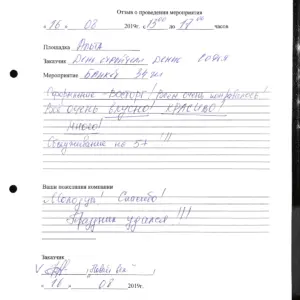 Отзыв о проведении мероприятия
« 16 » 08 2019г. с 13 00 до 17 00 часов.
Площадка
Заказчик День строителя
Мероприятие Банкет 34 чел
Оформление - Восторг! Всем очень понравилось!
Всё очень вкусно! Красиво!
Много!
Обслуживание на 5+ !!!
Ваши пожелания компании
Молодцы! Спасибо!
Праздник удался!!!
Заказчик
« 16 » 08 2019г.